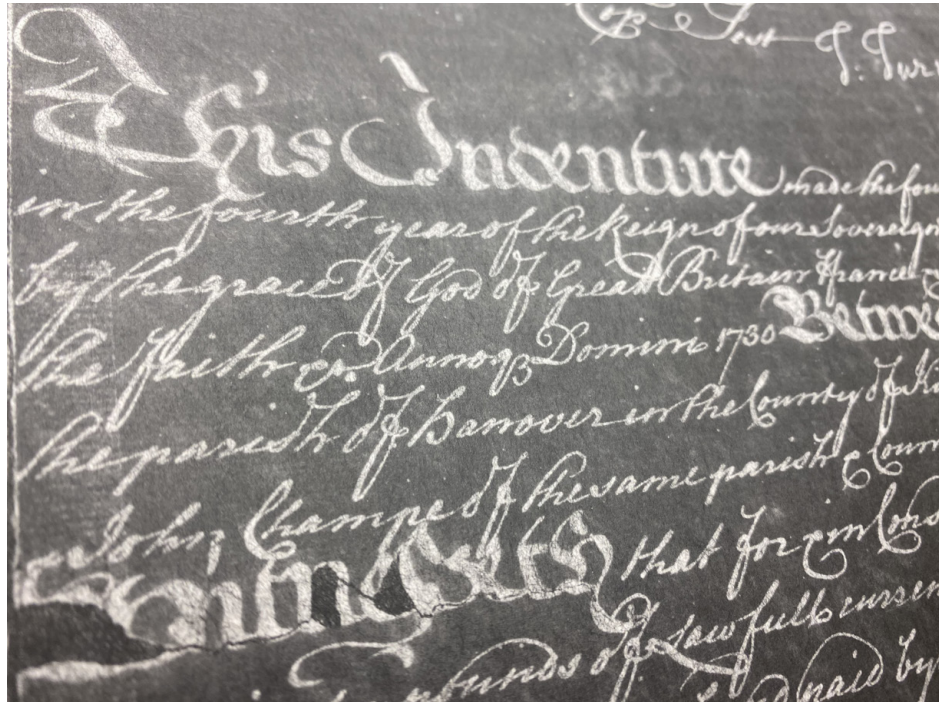 Cop Test
This Indenture made the four
in the fourth year of the Reign of our Sovereign
by the grace Of God Of Great Britain France
the Faith &c. Annoq3 Domini 1730 Betwe
the parish Of Hanover in the County Of Ki
John Champe Of the same parish & Coun
Witnesseth that for & in Cons
pounds Of Lawfull curren
paid by